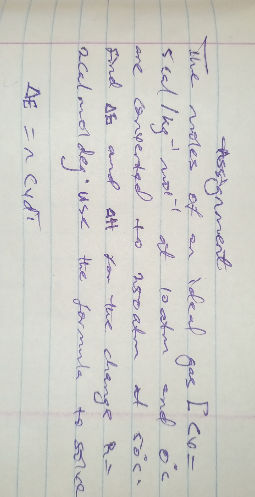 Assignment
Two moles of an ideal gas [Cv =
5cal/kg⁻¹ mol⁻¹ at 10atm and 0°c
are converted to 250atm at 50°c.
Find ΔE and ΔH for the change R =
2cal mol deg. Use the formula to solve
ΔE = n CvdT